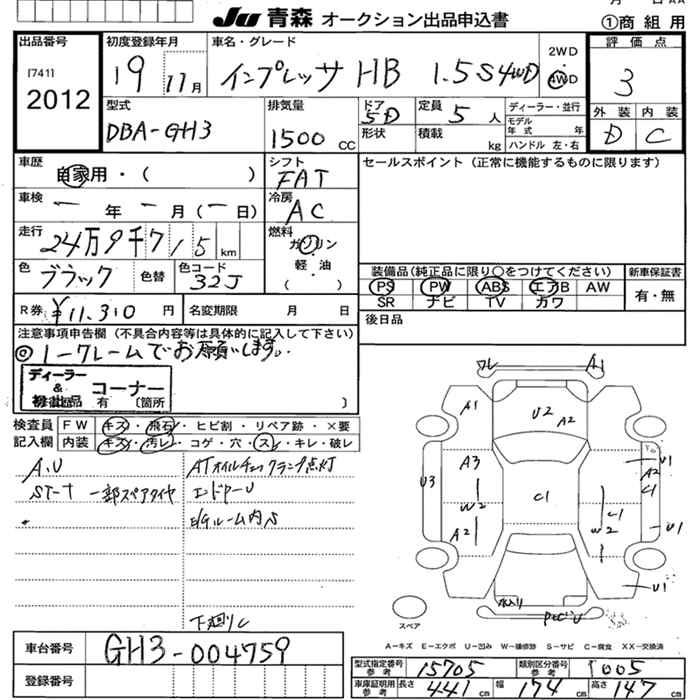 JU 青森 オークション出品申込書 ①商組用
出品番号 初度登録年月 車名・グレード 2WD 評価点
[741] 2012 19 年 11月 インプレッサ HB 1.5S 4WD 4WD 3
型式 排気量 ドア 定員 ディーラー・並行 外装 内装
DBA-GH3 1500 CC 5D 5 人 モデル年式 年 D C
形状 積載 kg ハンドル 左・右
車歴 自家用・( ) シフト FAT セールスポイント (正常に機能するものに限ります)
車検 ー 年 ー 月 (ー日) 冷房 AC
走行 24万9千715 km 燃料 ガソリン
軽・油
( )
色 ブラック 色替 色コード 32J 装備品(純正品に限り○をつけてください) 新車保証書
PS PW ABS エアB AW 有・無
SR ナビ TV カワ
R券 ¥11.310 円 名変期限 月 日 後日品
注意事項申告欄 (不具合内容等は具体的に記入して下さい)
◎ ノークレームでお願いします。
ディーラー & 初出品 コーナー
有 〔箇所 〕
検査員 FW キズ・飛石・ヒビ割・リペア跡・×要
記入欄 内装 キズ・汚レ・コゲ・穴・スレ・キレ・破レ
A.U ATオイル
一部スペアタイヤ
E/Gルーム内S
下廻りC
車台番号 GH3-004759
登録番号
フレ A1
A1 U2 A2
A3 U3 W2 A2 C1 C1 W2 A2 C1 U1
U1
U1
スペア
A−キズ E−エクボ U−凹み W−補修跡 S−サビ C−腐食 XX−交換済
型式指定番号 参考 15705 類別区分番号 参考 1005
車庫証明用 参考 長さ 441 cm 幅 174 cm 高さ 147 cm